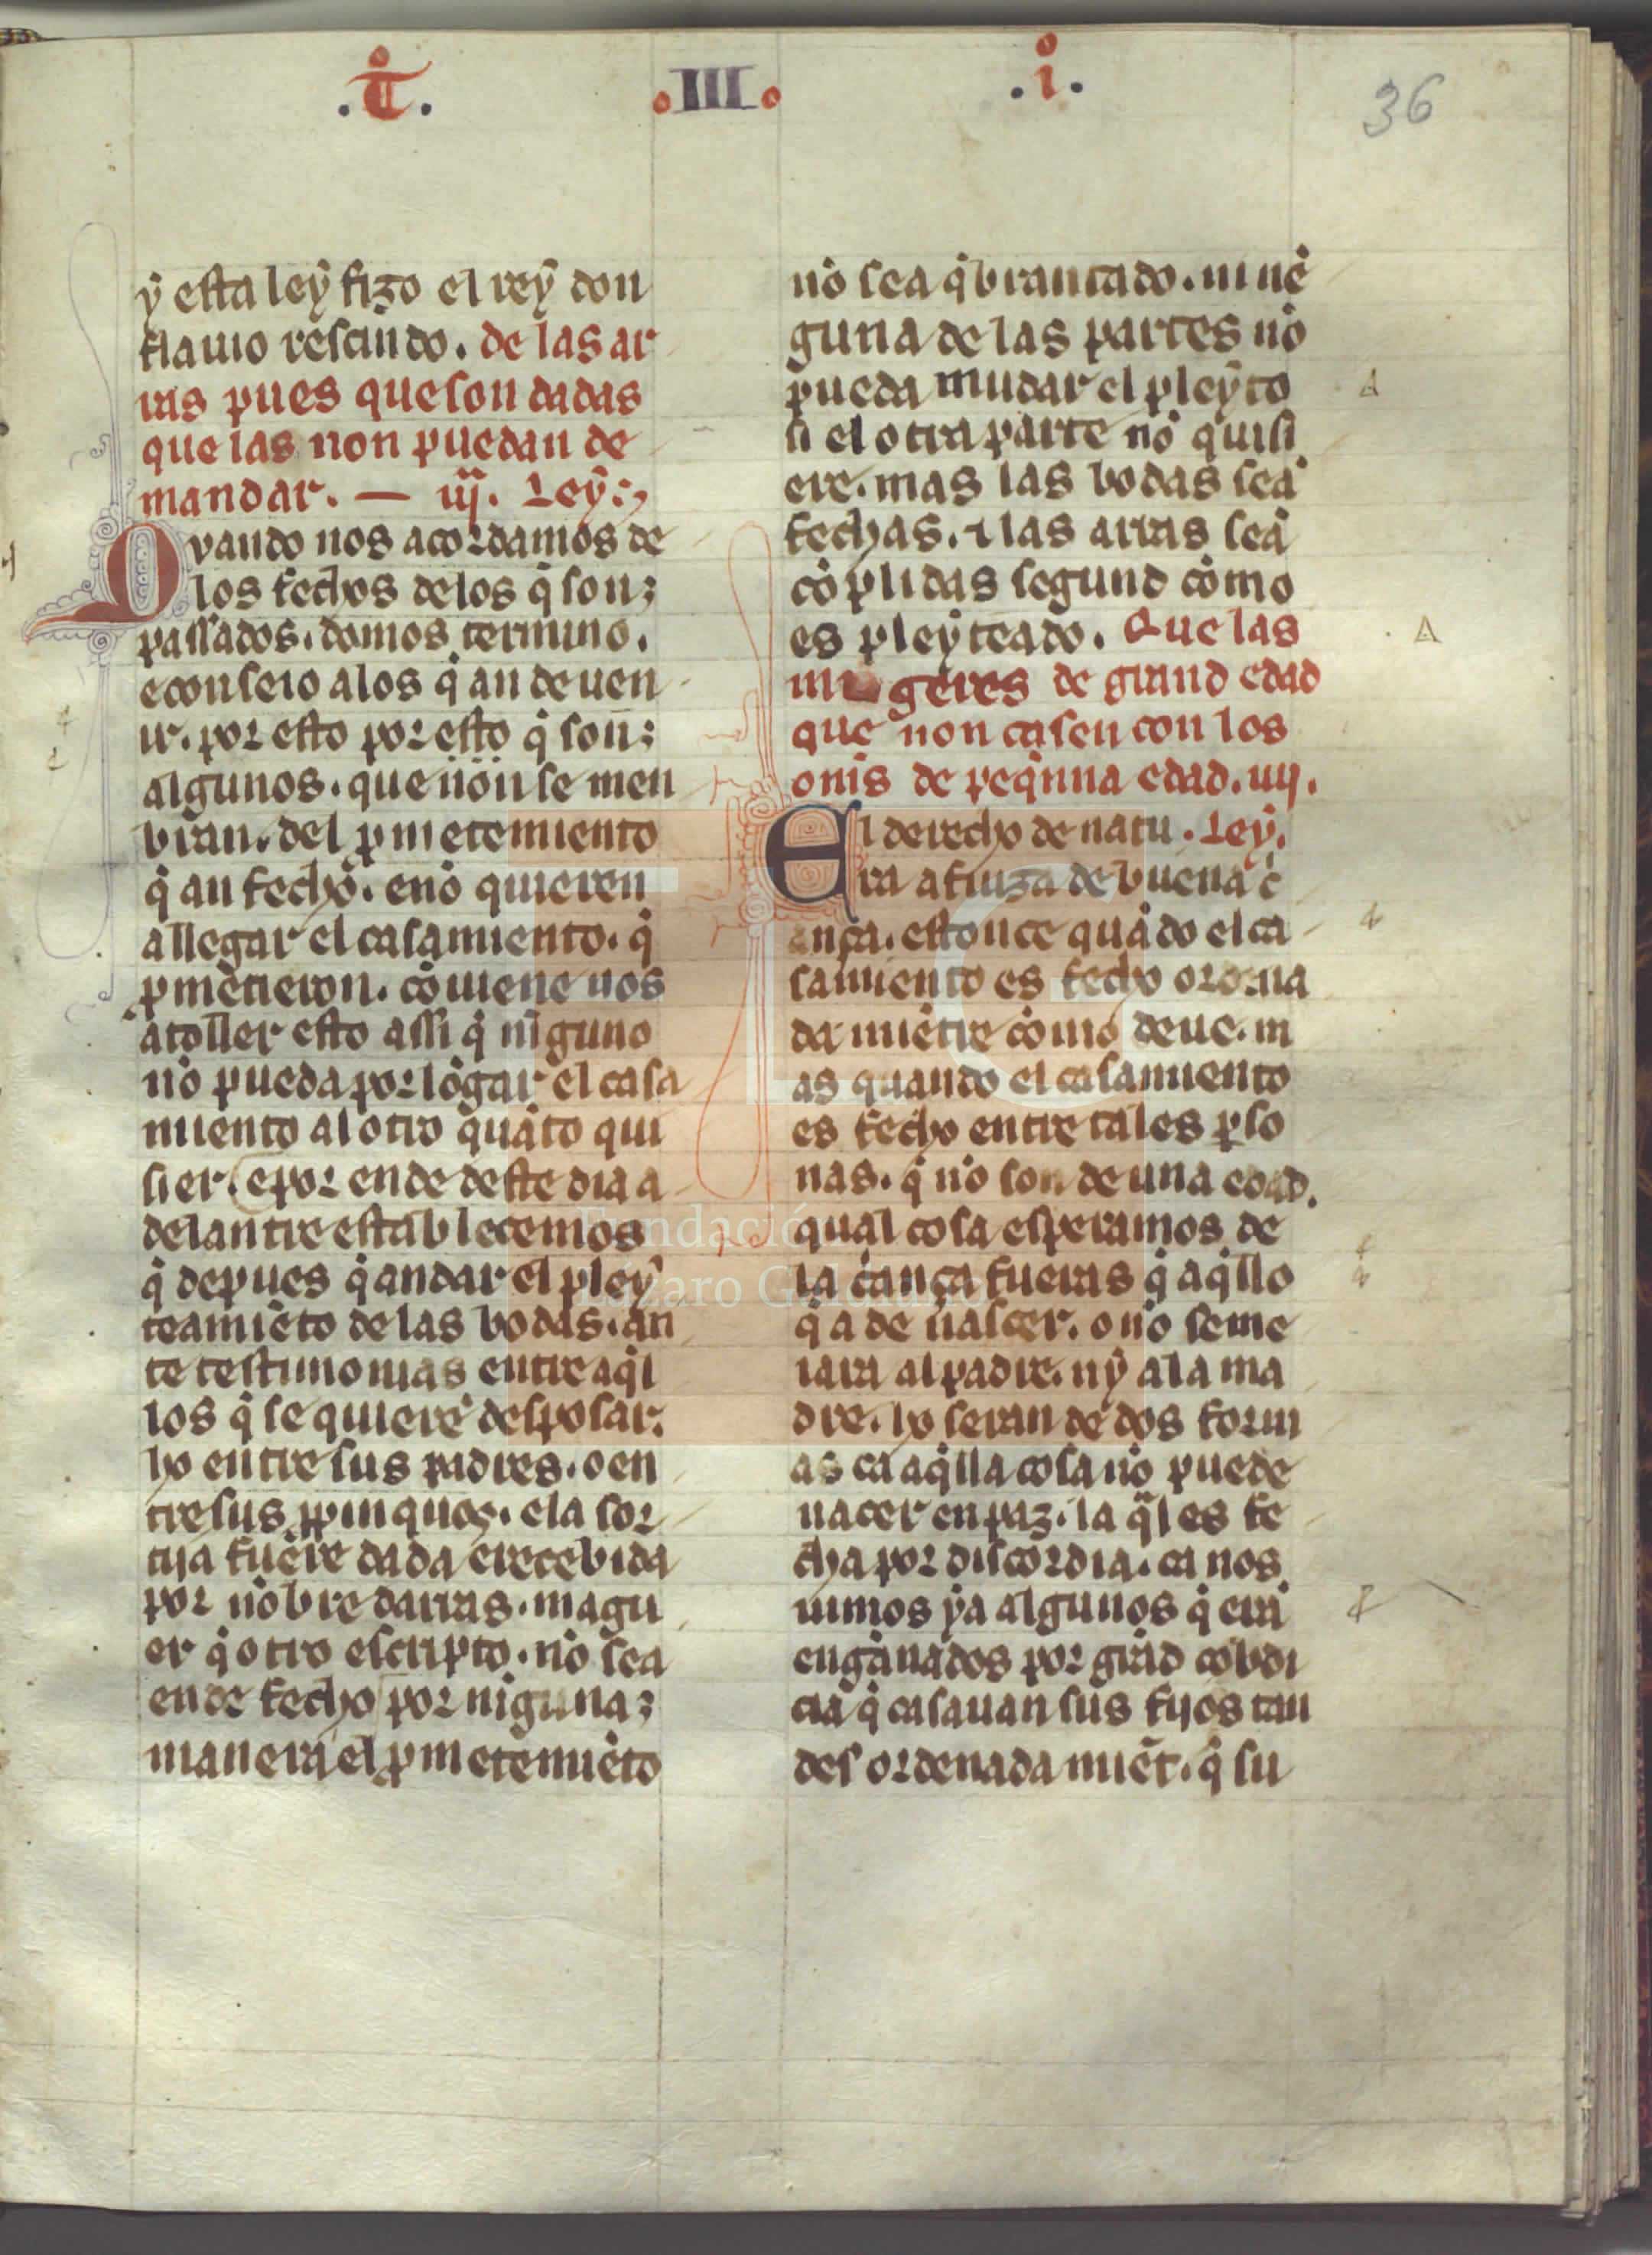 .t̊. .III. .i̊. 36
ẏ esta leẏ fizo el reẏ don
flauio rescindo. de las ar
ras pues que son dadas
que las non puedan de
mandar. — iij. Ley:
Quando nos acordamos de
los fechos delos q̇ son;
passados. domos termino.
econseio alos q̇ an de uen
ir. por esto por esto q̇ son;
algunos. que non se men
bran. del ꝓmetemiento
q̇ an fecho. enȯ quieren
allegar el casamiento. q̇
ꝓmetieron. cȯuiene nos
atoller esto assi q̇ niguno
nȯ pueda porlȯgar el casa
miento al otro quȧto qui
sier. epor ende deste dia a
delantre establecemos
q̇ depues q̇ andar el pleẏ
teamiėto de las bodas. an
te testimonias entre aq̇l
los q̇ se quierė desposar.
ho entre sus padres. o en
tre sus ꝓpinquos. ela sor
tija fuere dada erecebida
por nȯbre darras. magu
er q̇ otro escripto. nȯ sea
ende fecho por niguna;
manera el ꝓmetemiėto
nȯ sea q̇brantado. ni nė
guna de las partes nȯ
pueda mudar el pleẏto
si el otra parte nȯ quisi
ere. mas las bodas seȧ
fechas. ⁊ las arras seȧ
cȯplidas segund cȯmo
es pleẏteado. Que las
mugeres de grand edad
que non casen con los
onis de peq̇nna edad. iiij.
El derecho de natu. Ley.
ra afiuza de buena ċ
ança. estonce quȧdo el ca
samiento es fecho ordena
da miėtre cȯmo deue. m
as quando el casamiento
es fecho entre tales ꝑso
nas. q̇ nȯ son de una edad.
qual cosa esperamos de
la ċança fueras q̇ aq̇llo
q̇ a de nascer. o nȯ seme
iara al padre. nẏ ala ma
dre. ho seran de dos form
as ca aq̇lla cosa nȯ puede
nacer en paz. la q̇l es fe
cha por discordia. ca nos
uimos ẏa algunos q̇ erȧ
engȧnados por grȧd cobdi
cia q̇ casauan sus fijos tan
des ordenada miėt. q̇ su
Fundación
Lázaro Galdiano